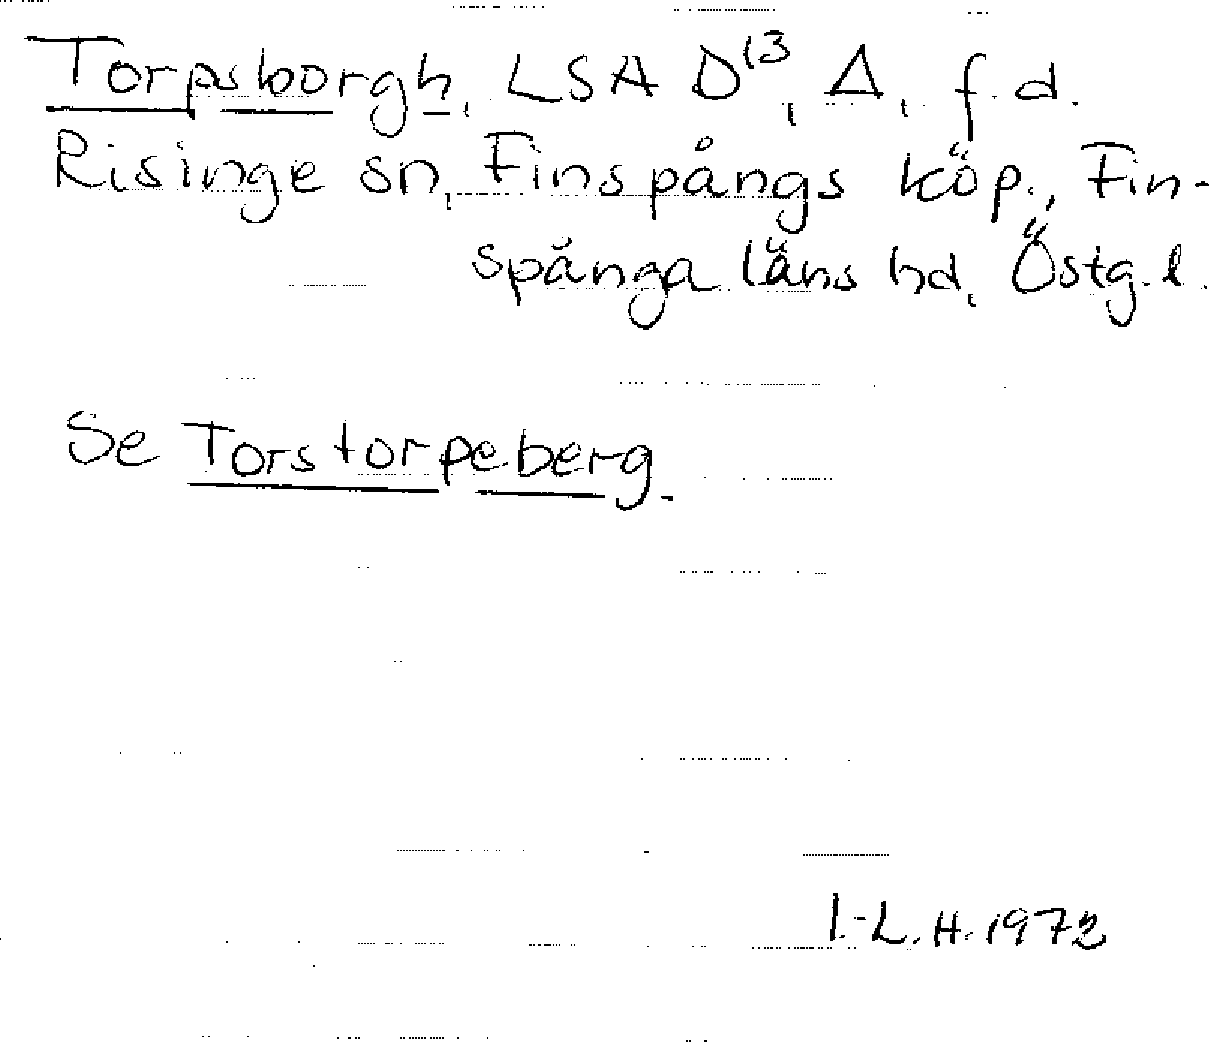 Torpsborgh, LSA D¹³, Δ, f.d.
Risinge sn, Finspångs köp., Fin-
spånga läns hd, Östg.l.
Se Torstorpeberg.
I.-L.H. 1972